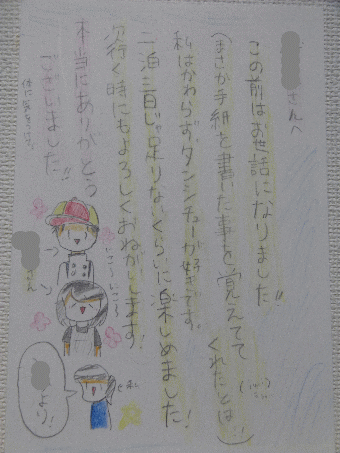 さんへ
この前はお世話になりました!!
(まさか手紙を書いた事を覚えてて
くれたとは…!)
私はかわらず、タンシチューが好きです。
二泊三日じゃ足りないくらいに楽しめました!
次行く時にもよろしくおねがいします!
本当にありがとう
ございました!!
さん
より!